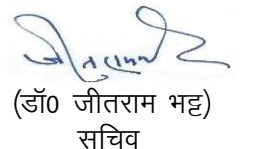 (डॉ0 जीतराम भट्ट)
सचिव